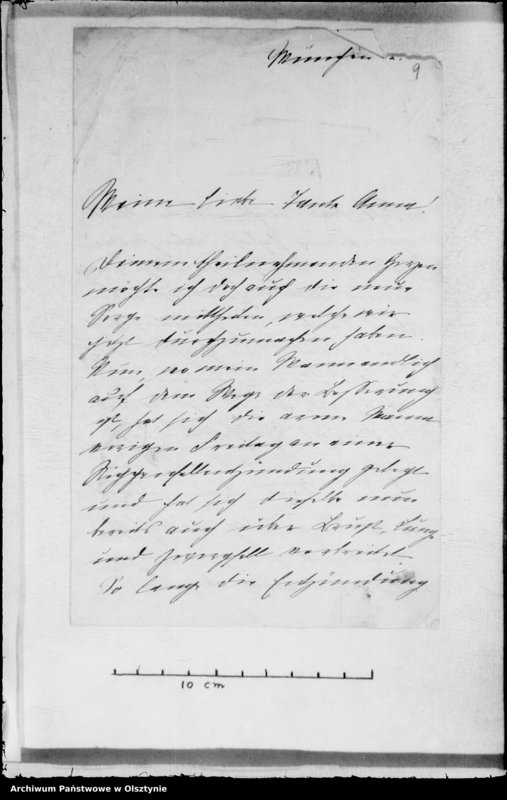 München
9
Meine liebe Tante Anna!
Deinem theilnehmenden Herzen
möchte ich doch auch die neue
Sorge mittheilen, welche wir
jetzt durchzumachen haben.
Nun, wo mein Mann endlich
auf dem Wege der Besserung
ist, hat sich die arme
vorigen Freitag an einer
Rippenfellentzündung gelegt
und hat sich dieselbe nun
bereits auch über Brust, Lunge
und Zwergfell verbreitet.
So lange die Entzündung
10 cm
Archiwum Państwowe w Olsztynie